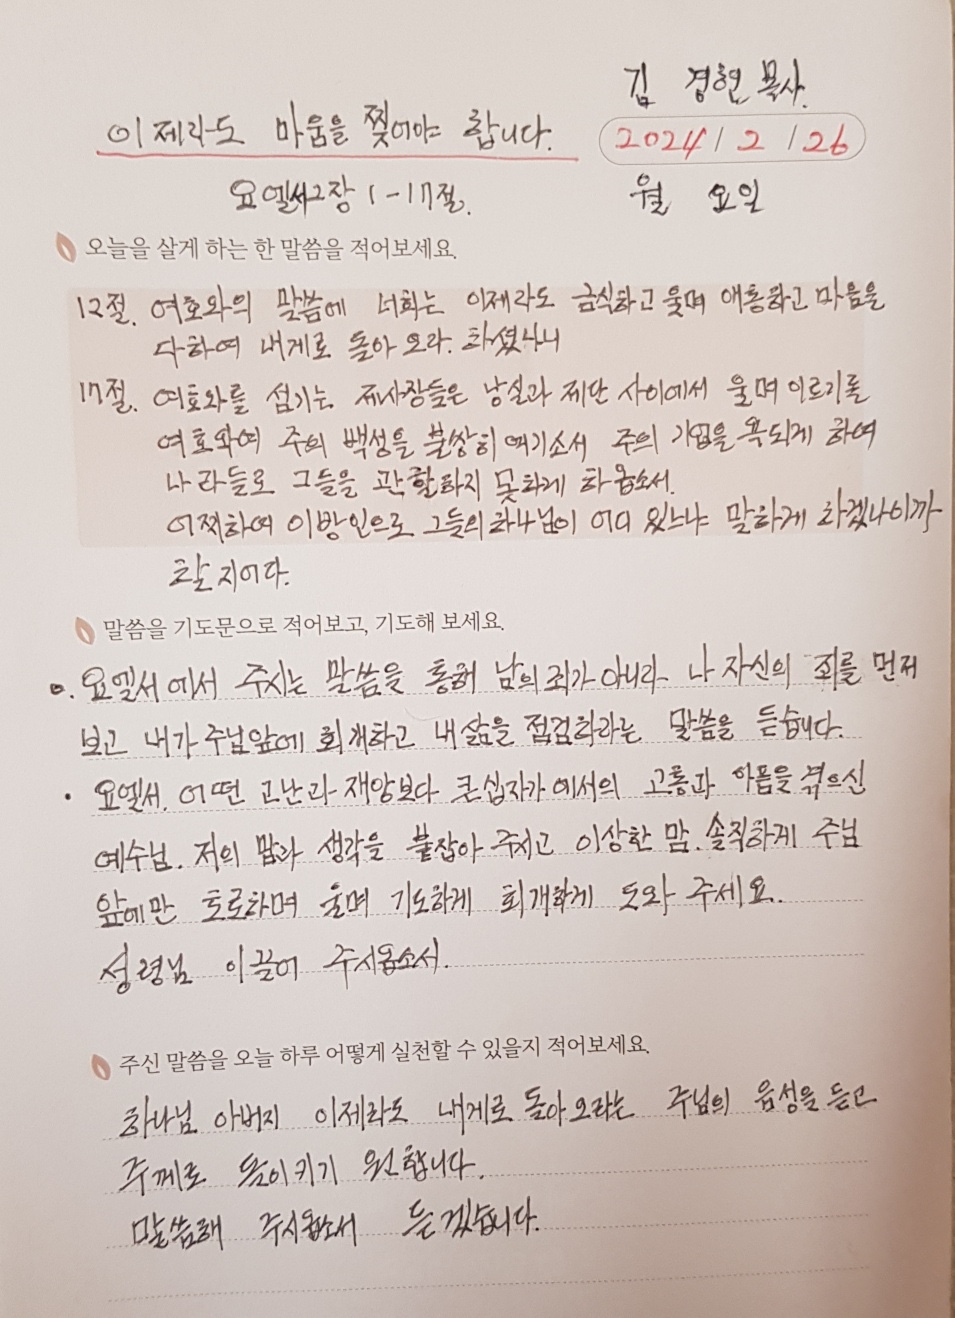 김 경현 목사.
이제라도 마음을 찢어야 합니다.
2024 / 2 / 26
요엘서 2장 1-17절.
월 요일
오늘을 살게 하는 한 말씀을 적어보세요.
12절. 여호와의 말씀에 너희는 이제라도 금식하고 울며 애통하고 마음을
다하여 내게로 돌아 오라. 하셨나니
17절. 여호와를 섬기는 제사장들은 낭실과 제단 사이에서 울며 이르기를
여호와여 주의 백성을 불쌍히 여기소서 주의 기업을 욕되게 하여
나라들로 그들을 관할하지 못하게 하옵소서.
어찌하여 이방인으로 그들의 하나님이 어디 있느냐 말하게 하겠나이까
할지어다.
말씀을 기도문으로 적어보고, 기도해 보세요.
요엘서에서 주시는 말씀을 통해 남의 죄가 아니라 나 자신의 죄를 먼저
보고 내가 주님앞에 회개하고 내 삶을 점검하라는 말씀을 듣습니다.
· 요엘서. 어떤 고난과 재앙보다 큰 십자가에서의 고통과 아픔을 겪으신
예수님. 저의 맘과 생각을 붙잡아 주시고 이상한 맘. 솔직하게 주님
앞에만 토로하며 울며 기도하게 회개하게 도와 주세요.
성령님 이끌어 주시옵소서.
주신 말씀을 오늘 하루 어떻게 실천할 수 있을지 적어보세요.
하나님 아버지 이제라도 내게로 돌아오라는 주님의 음성을 듣고
주께로 돌이키기 원합니다.
말씀해 주시옵소서 듣겠습니다.